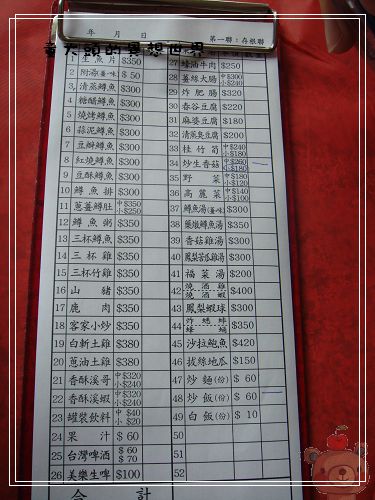 年 月 日
第一聯：存根聯
1 生魚片 $350
2 附湯(薑·味) $50
3 清蒸鱒魚 $300
4 糖醋鱒魚 $300
5 燒烤鱒魚 $300
6 蒜泥鱒魚 $300
7 豆瓣鱒魚 $300
8 紅燒鱒魚 $300
9 豆酥鱒魚 $300
10 鱒魚排 $300
11 蔥薑鱒肚 中$350 小$250
12 鱒魚粥 $350
13 三杯鱒魚 $350
14 三杯雞 $350
15 三杯竹雞 $350
16 山豬 $350
17 鹿肉 $350
18 客家小炒 $350
19 白斬土雞 $380
20 蔥油土雞 $380
21 香酥溪哥 中$320 小$240
22 香酥溪蝦 中$320 小$240
23 罐裝飲料 中$40 小$20
24 果汁 $60
25 台灣啤酒 $60 $70
26 美樂生啤 $100
合計
27 蠔油牛肉 $250
28 薑絲大腸 中$300 小$240
29 炸肥腸 $320
30 春谷豆腐 $220
31 麻婆豆腐 $180
32 清蒸臭豆腐 $200
33 桂竹筍 中$240 小$180
34 炒生香菇 中$260 小$180
35 野菜 中$180 小$120
36 高麗菜 中$140 小$100
37 鱒魚湯(薑·味) $300
38 藥燉鱒魚湯 $350
39 香菇雞湯 $300
40 鳳梨苦瓜雞湯 $300
41 福菜湯 $200
42 燒酒雞 燒酒蝦 $400
43 鳳梨蝦球 $300
44 炸蟋蟀 $350
45 沙拉鮑魚 $420
46 拔絲地瓜 $150
47 炒麵(份) $60
48 炒飯(份) $60
49 白飯(份) $10
50
51
52